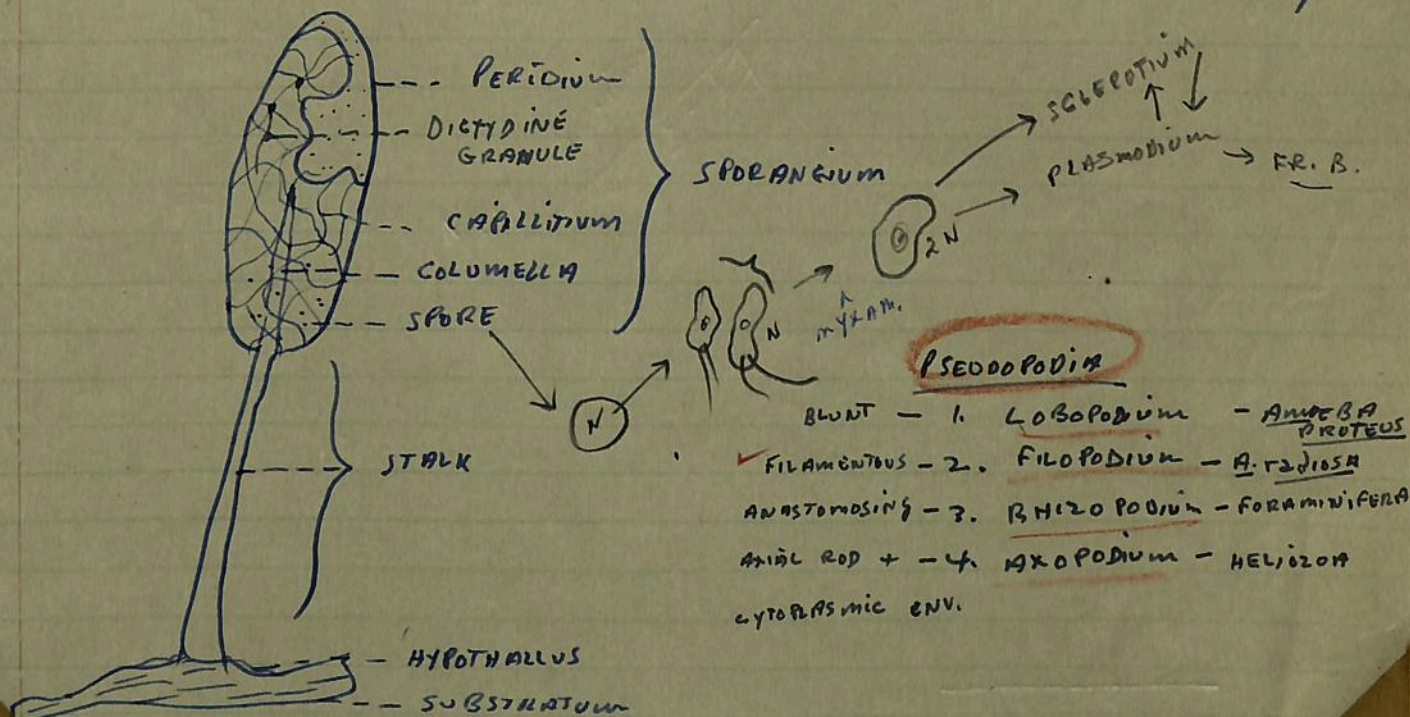 PERIDIUM
DICTYDINE
GRANULE
CAPILLITIUM
COLUMELLA
SPORE
SPORANGIUM
STALK
HYPOTHALLUS
SUBSTRATUM
N
N
MYXAM.
2N
SCLEROTIUM
PLASMODIUM
FR. B.
PSEUDOPODIA
BLUNT - 1. LOBOPODIUM - AMOEBA
PROTEUS
FILAMENTOUS - 2. FILOPODIUM - A. radiosa
ANASTOMOSING - 3. RHIZOPODIUM - FORAMINIFERA
AXIAL ROD + - 4. AXOPODIUM - HELIOZOA
CYTOPLASMIC ENV.